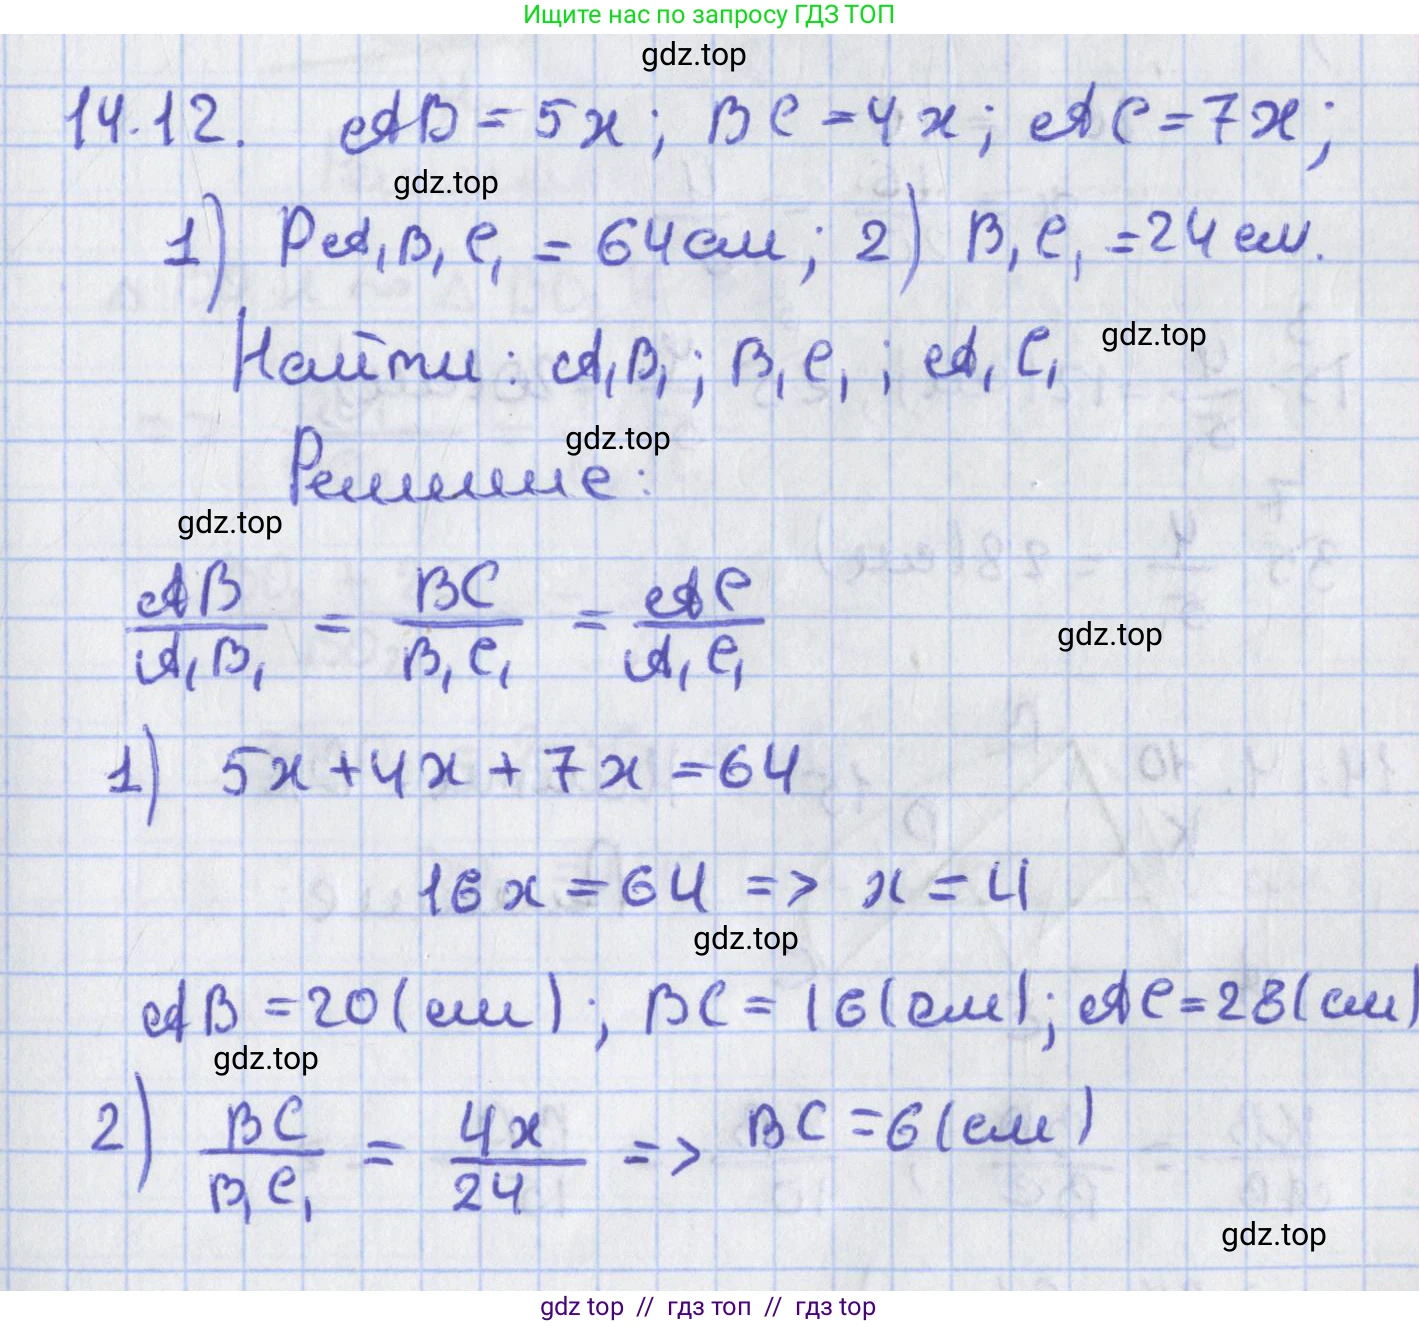 Ищите нас по запросу ГДЗ ТОП
gdz.top
14.12. AB = 5x; BC = 4x; AC = 7x;
gdz.top
1) PA₁B₁C₁ = 64 см; 2) B₁C₁ = 24 см.
gdz.top
Найти: A₁B₁; B₁C₁; A₁C₁
gdz.top
Решение:
gdz.top
AB/A₁B₁ = BC/B₁C₁ = AC/A₁C₁
gdz.top
1) 5x + 4x + 7x = 64
16x = 64 => x = 4
gdz.top
AB = 20 (см); BC = 16 (см); AC = 28 (см)
gdz.top
2) BC/B₁C₁ = 4x/24 => BC = 6 (см)
gdz.top
gdz top // гдз топ // гдз top